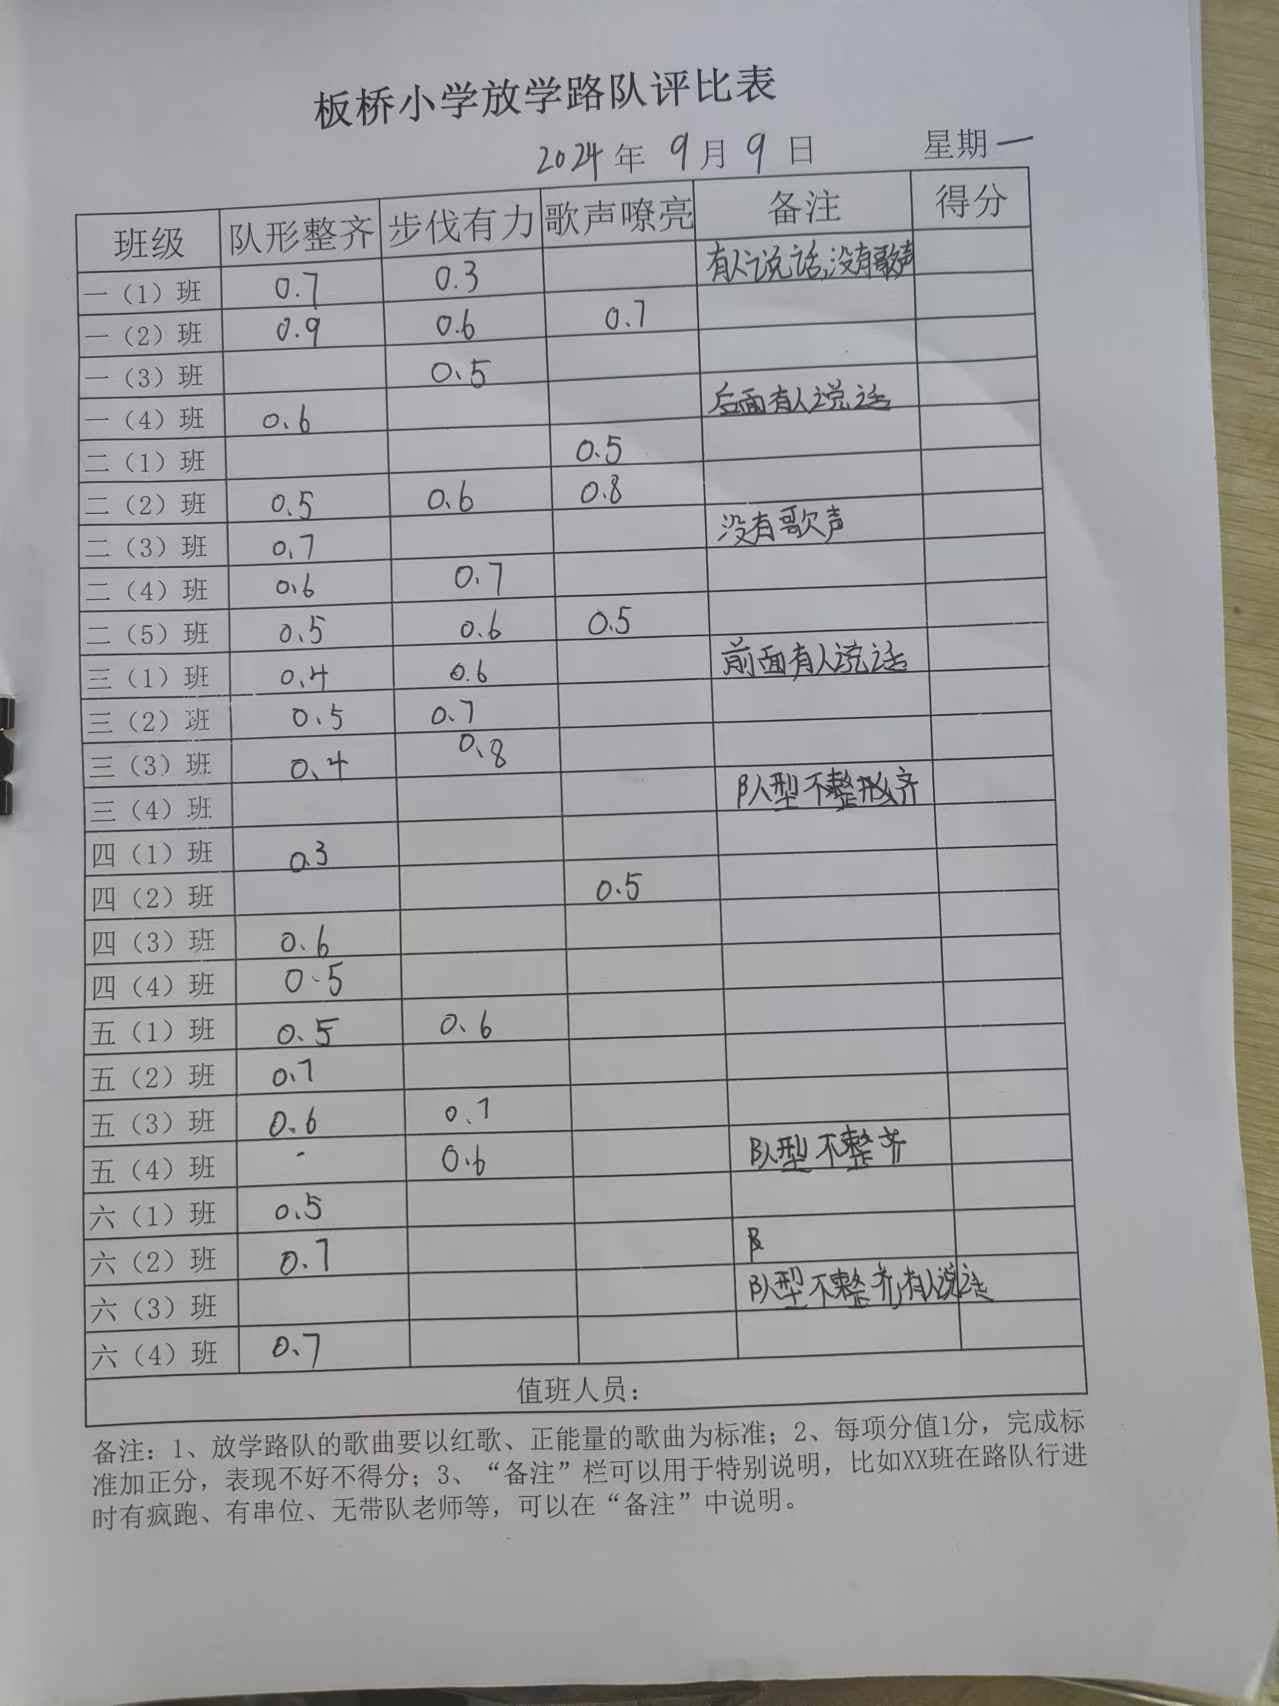 板桥小学放学路队评比表
2024年 9月 9日 星期一
班级 队形整齐 步伐有力 歌声嘹亮 备注 得分
一（1）班 0.7 0.3 有人说话,没有歌声
一（2）班 0.9 0.6 0.7
一（3）班 0.5
一（4）班 0.6 后面有人说话
二（1）班 0.5
二（2）班 0.5 0.6 0.8
二（3）班 0.7 没有歌声
二（4）班 0.6 0.7
二（5）班 0.5 0.6 0.5
三（1）班 0.4 0.6 前面有人说话
三（2）班 0.5 0.7
三（3）班 0.4 0.8
三（4）班 队型不整齐
四（1）班 0.3
四（2）班 0.5
四（3）班 0.6
四（4）班 0.5
五（1）班 0.5 0.6
五（2）班 0.7
五（3）班 0.6 0.7
五（4）班 0.6 队型不整齐
六（1）班 0.5
六（2）班 0.7
六（3）班 队型不整齐,有人说话
六（4）班 0.7
值班人员：
备注：1、放学路队的歌曲要以红歌、正能量的歌曲为标准；2、每项分值1分，完成标
准加正分，表现不好不得分；3、“备注”栏可以用于特别说明，比如XX班在路队行进
时有疯跑、有串位、无带队老师等，可以在“备注”中说明。